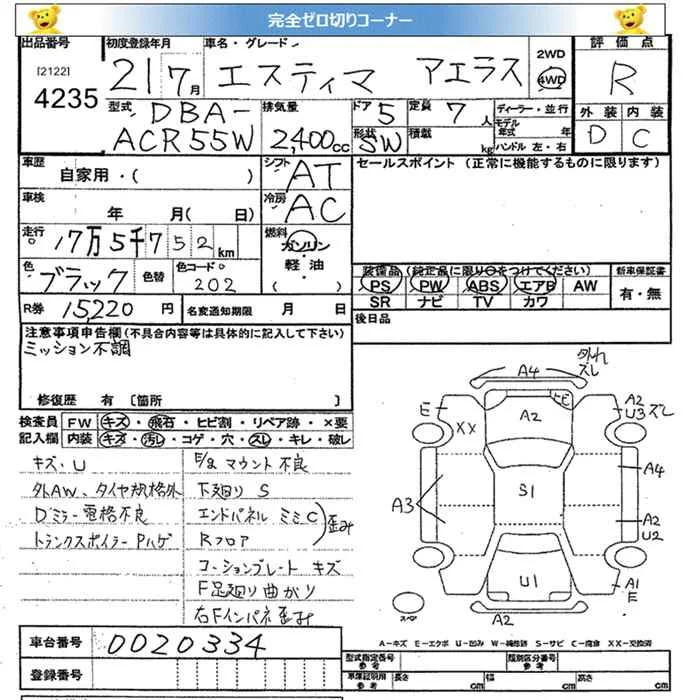 完全ゼロ切りコーナー
出品番号 初度登録年月 車名・グレード 2WD 4WD 評価点
[2122] 4235 21 7月 エスティマ アエラス R
型式 DBA-ACR55W 排気量 2,400cc ドア 5 定員 7人 ディーラー・並行 外装 内装
形状 SW 積載 kg モデル年式 年 ハンドル 左・右 D C
車歴 自家用・( ) シフト AT セールスポイント (正常に機能するものに限ります)
車検 年 月(日) 冷房 AC
走行 17万5千752km 燃料 ガソリン 軽・油 ( )
色 ブラック 色替 色コードNo 202
装備品 (純正品に限り○をつけてください) 新車保証書
PS PW ABS エアB AW 有・無
SR ナビ TV カワ
R券 15220円 名変通知期限 月 日 後日品
注意事項申告欄(不具合内容等は具体的に記入して下さい)
ミッション不調
修復歴 有 [箇所 ]
検査員 FW キズ・飛石・ヒビ割・リペア跡・×要
記入欄 内装 キズ・汚し・コゲ・穴・スレ・キレ・破レ
キズ、U E/g マウント不良
外AW、タイヤ規格外 下廻り S
Dミラー電格不良 エンドパネル ミミC 歪み
トランクスポイラーPハゲ Rフロア
コーションプレート キズ
F足廻り曲がり
右Fインパネ歪み
外れ
ズレ
A4
E XX A2 ヒビ A2 U3 ズレ
A3 S1 A4
A2 U2
U1 A1 E
スペア A2
A-キズ E-エクボ U-凹み W-補修跡 S-サビ C-腐食 XX-交換済
車台番号 0020334
登録番号
型式指定番号 参考 類別区分番号 参考
車庫証明用 参考 長さ cm 幅 cm 高さ cm